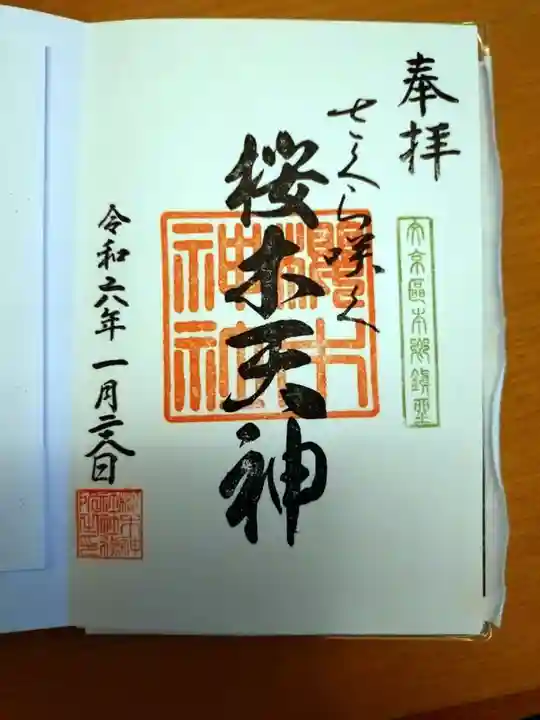 奉拝
文京區本郷鎮座
さくら咲く
桜木天神
櫻木神社
令和六年一月二八日